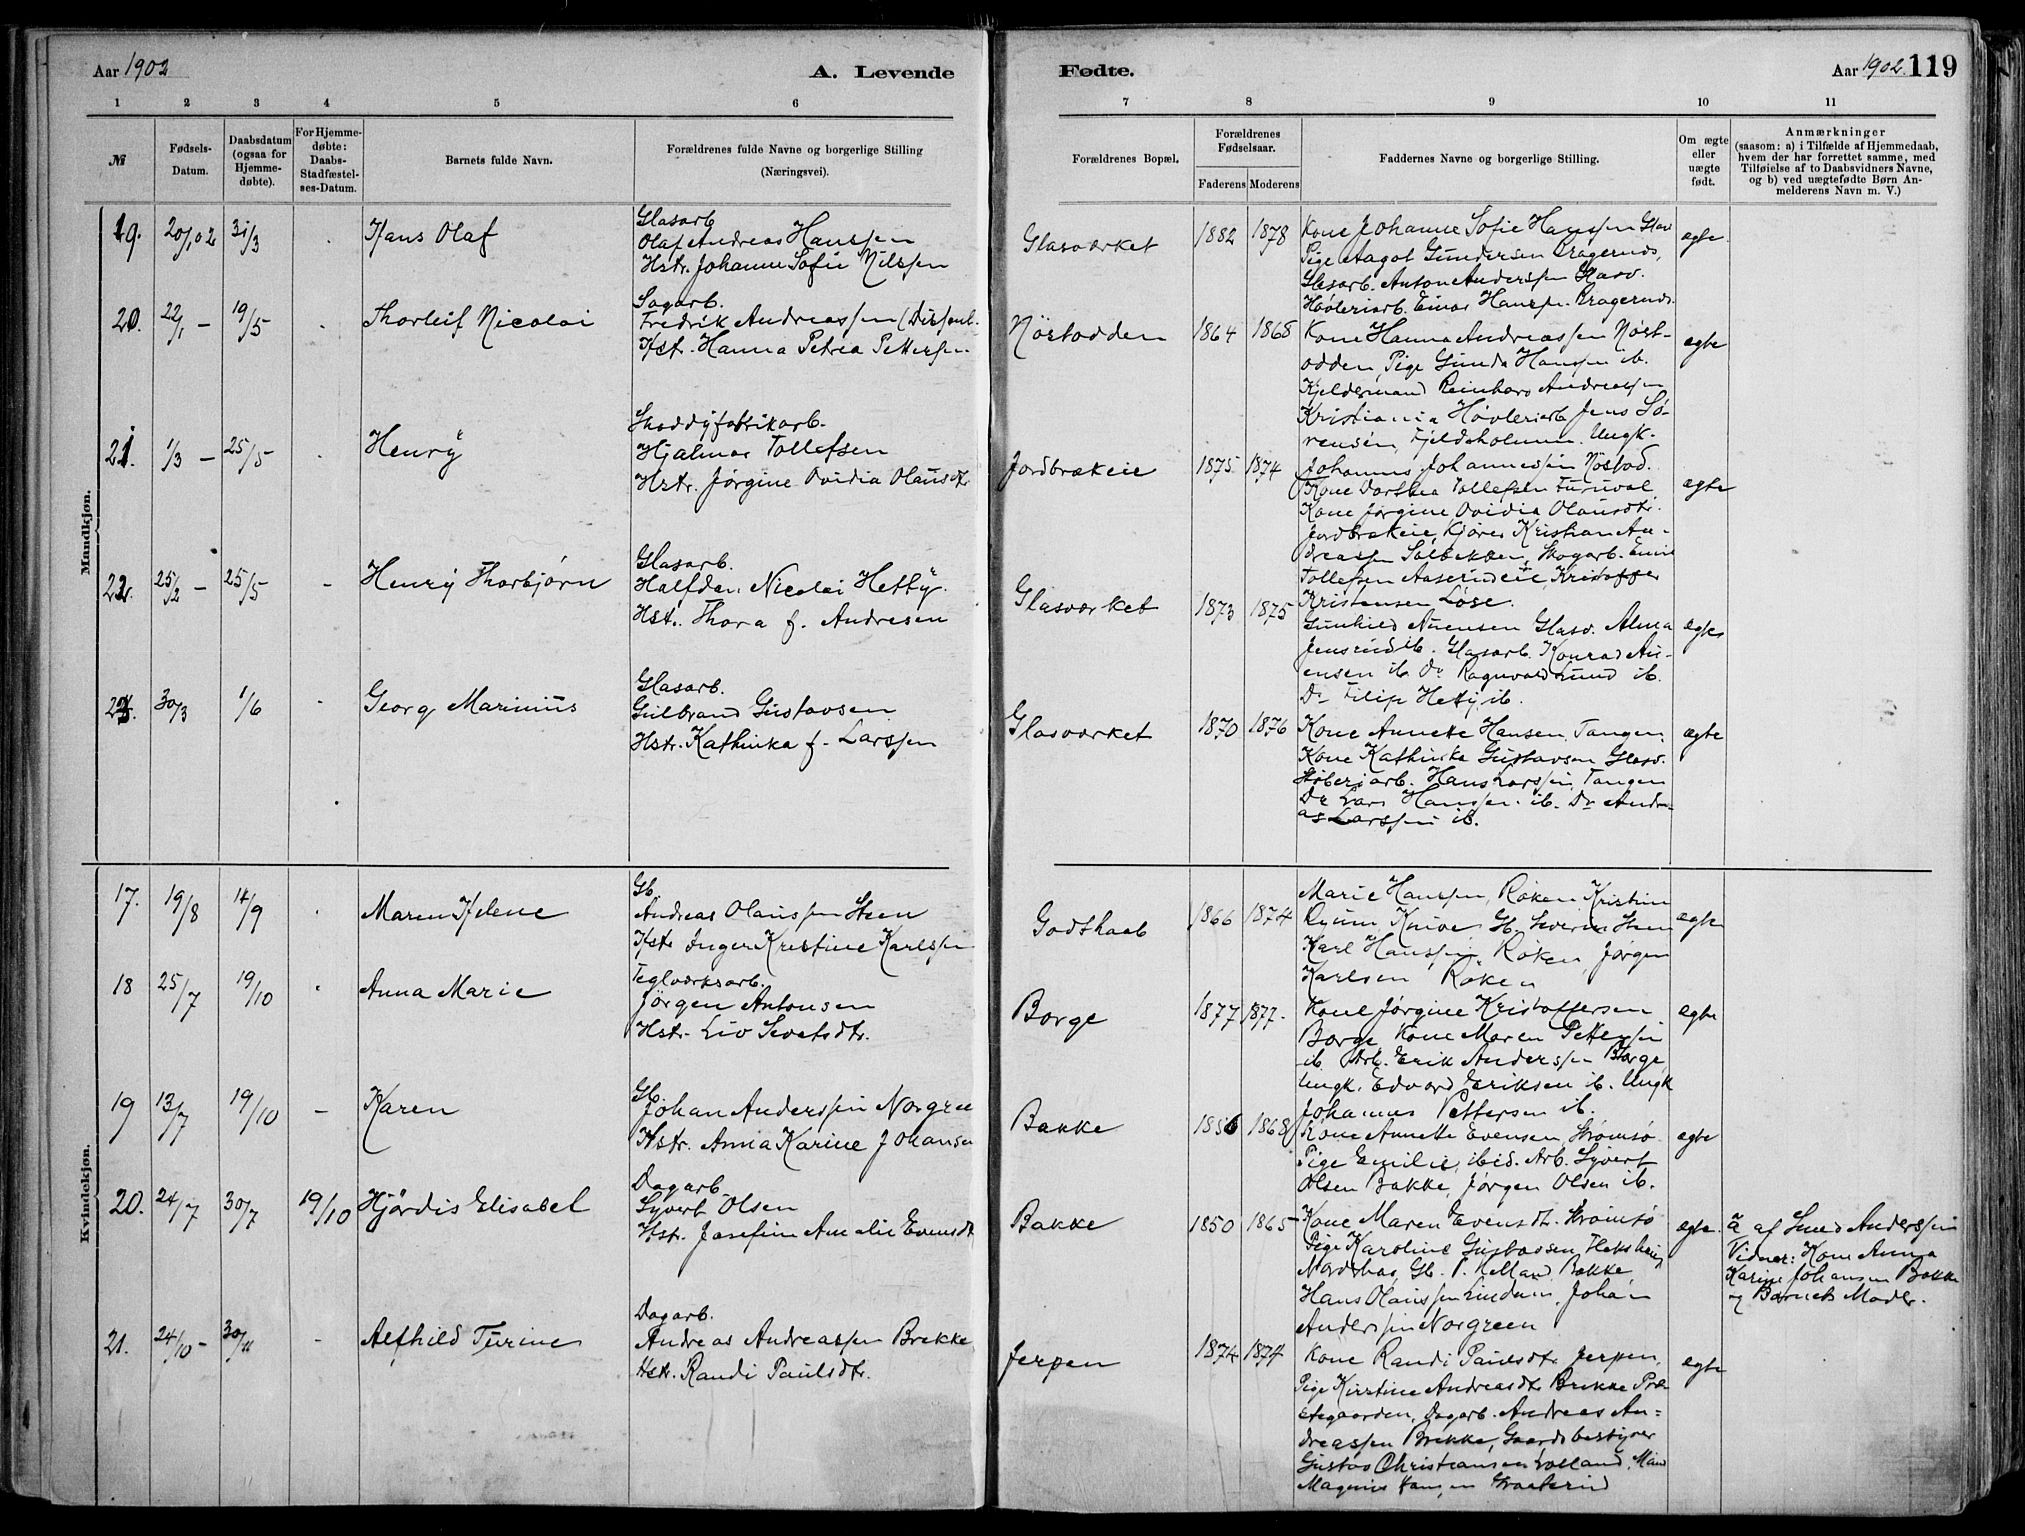 Aar 1902
A. Levende
Fødte.
Aar 1902. 119
1 2 3 4 5 6 7 8 9 10 11
№
Fødsels-
Datum.
Daabsdatum
(ogsaa for
Hjemme-
døbte).
For Hjemme-
døbte:
Daabs-
Stadfæstel-
ses-Datum.
Barnets fulde Navn.
Forældrenes fulde Navne og borgerlige Stilling
(Næringsvei).
Forældrenes Bopæl.
Forældrenes
Fødselsaar.
Faderens Moderens
Faddernes Navne og borgerlige Stilling.
Om ægte
eller
uægte
født.
Anmærkninger
(saasom: a) i Tilfælde af Hjemmedaab,
hvem der har forrettet samme, med
Tilføielse af to Daabsvidners Navne,
og b) ved uægtefødte Børn An-
melderens Navn m. V.)
Mandkjøn.
19. 20/1 02 31/3 Hans Olaf
Glasarb
Olaf Andreas Hanssen
Hstr. Johanne Sofie Nilssen
Glasværket 1882 1878
Kone Johanne Sofie Hanssen Glasv
Pige Aagot Gundersen Bragernes,
Glasarb. Anton Anderssen Glasv.
Høvleriarb. Einar Hanssen Bragernes.
ægte
20. 22/1 – 19/5 Thorleif Nicolai
Sagarb.
Fredrik Andreassen (Dissent.
Hstr. Hanna Petrea Pettersen
Nøstodden 1864 1868
Kone Hanna Andreassen Nøst-
odden, Pige Gunda Hansen ib.
Kjeldermand Reinhard Andreassen
Kristiania Høvleriarb Jens Sø-
rensen, Fjeldsholmen. Ungk.
Johannes Johannessen Nøstod.
ægte
21. 1/3 – 25/5 Henry
Shoddyfabrikarb.
Hjalmar Tollefsen
Hstr. Jørgine Ovidia Olausdtr
Jordbrækeie 1875 1874
Kone Dorthea Tollefsen
Kone Jørgine Ovidia Olausdtr.
Jordbrækeie, Kjører Kristian An-
dreassen Solbakken, Skogarb. Emil
Tollefsen Aaserudeie, Kristoffer
Kristensen Løse.
ægte
22. 25/2 – 25/5 – Henry Thorbjørn
Glasarb.
Halfdan Nicolai Hetty.
Hst. Thora f. Andresen
Glasværket 1873 1875
Gunhild Auensen Glasv. Alma
Jensrud ib. Glasarb. Konrad Au-
ensen ib. Do Ragnvald Lund ib.
Do Filip Hetty ib.
ægte
23. 30/3 1/6 Georg Marinius
Glasarb.
Gulbrand Gustavsen
Hstr. Kathinka f. Larssen
Glasværket 1870 1876
Kone Annette Hansen, Tangen,
Kone Kathinka Gustavsen Glasv.
Støberiarb. Hans Larssen, Tangen
Do Lars Hanssen ib. Do Andre-
as Larssen ib.
ægte
Kvindekjøn.
17. 19/8 14/9 Maren Helene
Gb.
Andreas Olaussen Steen
Hstr Inger Kristine Karlssen
Godthaab 1866 1874
Marie Hanssen, Røken, Kristine
Gb. Severin Steen
Karl Hanssen, Røken, Jørgen
Karlsen Røken
ægte
18 25/7 19/10 Anna Marie
Teglværksarb.
Jørgen Antonsen
Hstr. Liv Sevetsdtr.
Borge 1877 1877.
Kone Jørgine Kristoffersen
Borge Kone Maren Pettersen
ib. Arb. Erik Anderssen Borge,
Ungk. Edvard Eriksen ib. Ungk
Johannes Pettersen ib.
ægte
19 13/7 19/10 – Karen
Gb.
Johan Anderssen Norgree
Hstr. Anna Karine Johansen
Bakke 1856 1868
Kone Annette Evensen, Strømsø
Pige Emilie, ibid. Arb. Syvert
Olsen Bakke, Jørgen Olsen ib.
ægte
20. 24/7 30/7 19/10 Hjördis Elisabet
Dagarb
Syvert Olsen
Hstr. Josefine Amalie Evensdt
Bakke 1850 1865
Kone Maren Evensdt. Strømsø
Pige Karoline Gustavsen
Gb. P. Helland Bakke
Hans Olaussen Lindum, Johan
Anderssen Norgreen
ægte.
a af Smed Anderssen
Vidner: Kone Anna
Karine Johansen Bakke
og Barnets Moder.
21. 24/10 – 30/11 Alfhild Turine
Dagarb.
Andreas Andreassen Brekke
Hstr. Randi Paulsdtr.
Jerpen 1874 1874
Kone Randi Paulsdtr Jerpen,
Pige Kirstine Andreasdtr Brekke Præ-
stegaarden, Dagarb. Andreas An-
dreassen Brekke, Gaardsbestyrer
Gustav Christiansen
ægte